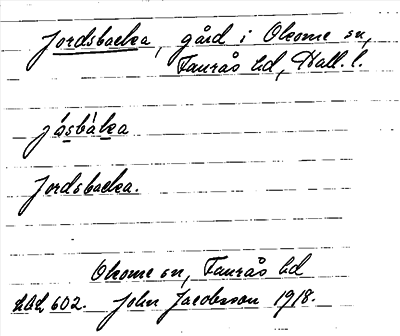 Jordsbacka, gård i Okome sn,
Faurås hd, Hall. l.
jásbáka
Jordsbacka.
Okome sn, Faurås hd
602. John Jacobsson 1918.